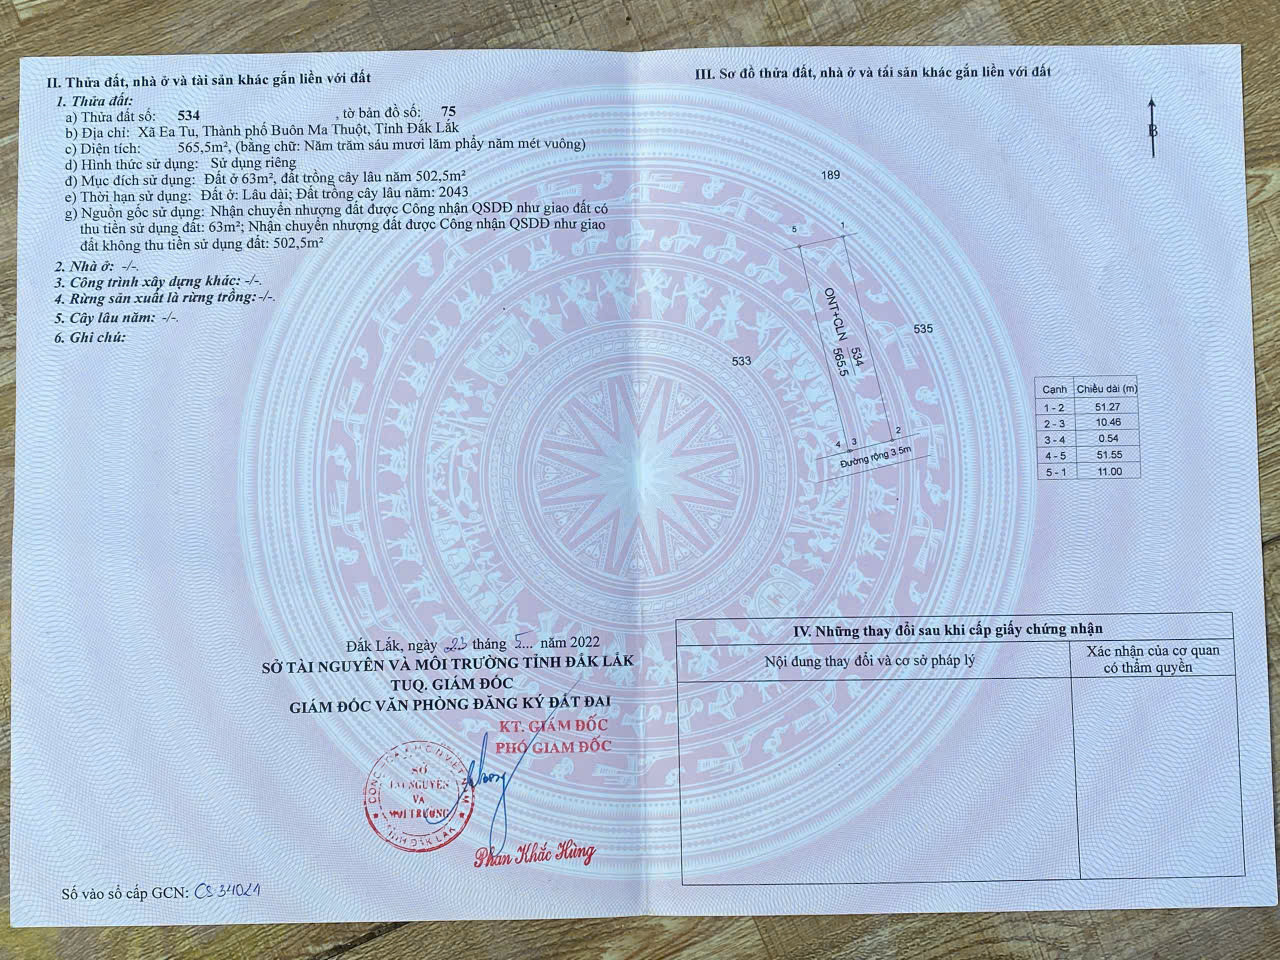 II. Thửa đất, nhà ở và tài sản khác gắn liền với đất
1. Thửa đất:
a) Thửa đất số: 534 , tờ bản đồ số: 75
b) Địa chỉ: Xã Ea Tu, Thành phố Buôn Ma Thuột, Tỉnh Đắk Lắk
c) Diện tích: 565,5m², (bằng chữ: Năm trăm sáu mươi lăm phẩy năm mét vuông)
d) Hình thức sử dụng: Sử dụng riêng
đ) Mục đích sử dụng: Đất ở 63m², đất trồng cây lâu năm 502,5m²
e) Thời hạn sử dụng: Đất ở: Lâu dài; Đất trồng cây lâu năm: 2043
g) Nguồn gốc sử dụng: Nhận chuyển nhượng đất được Công nhận QSDĐ như giao đất có
thu tiền sử dụng đất: 63m²; Nhận chuyển nhượng đất được Công nhận QSDĐ như giao
đất không thu tiền sử dụng đất: 502,5m²
2. Nhà ở: -/-.
3. Công trình xây dựng khác: -/-.
4. Rừng sản xuất là rừng trồng:-/-.
5. Cây lâu năm: -/-.
6. Ghi chú:
Đắk Lắk, ngày 23 tháng 5 năm 2022
SỞ TÀI NGUYÊN VÀ MÔI TRƯỜNG TỈNH ĐẮK LẮK
TUQ. GIÁM ĐỐC
GIÁM ĐỐC VĂN PHÒNG ĐĂNG KÝ ĐẤT ĐAI
KT. GIÁM ĐỐC
PHÓ GIÁM ĐỐC
SỞ
TÀI NGUYÊN
VÀ
MÔI TRƯỜNG
TỈNH ĐẮK LẮK
Phan Khắc Hùng
Số vào sổ cấp GCN: CS 34021
III. Sơ đồ thửa đất, nhà ở và tài sản khác gắn liền với đất
B
189
5 1
ONT+CLN 534
565.5
535
533
4 3 2
Đường rộng 3.5m
Cạnh Chiều dài (m)
1 - 2 51.27
2 - 3 10.46
3 - 4 0.54
4 - 5 51.55
5 - 1 11.00
IV. Những thay đổi sau khi cấp giấy chứng nhận
Nội dung thay đổi và cơ sở pháp lý
Xác nhận của cơ quan
có thẩm quyền